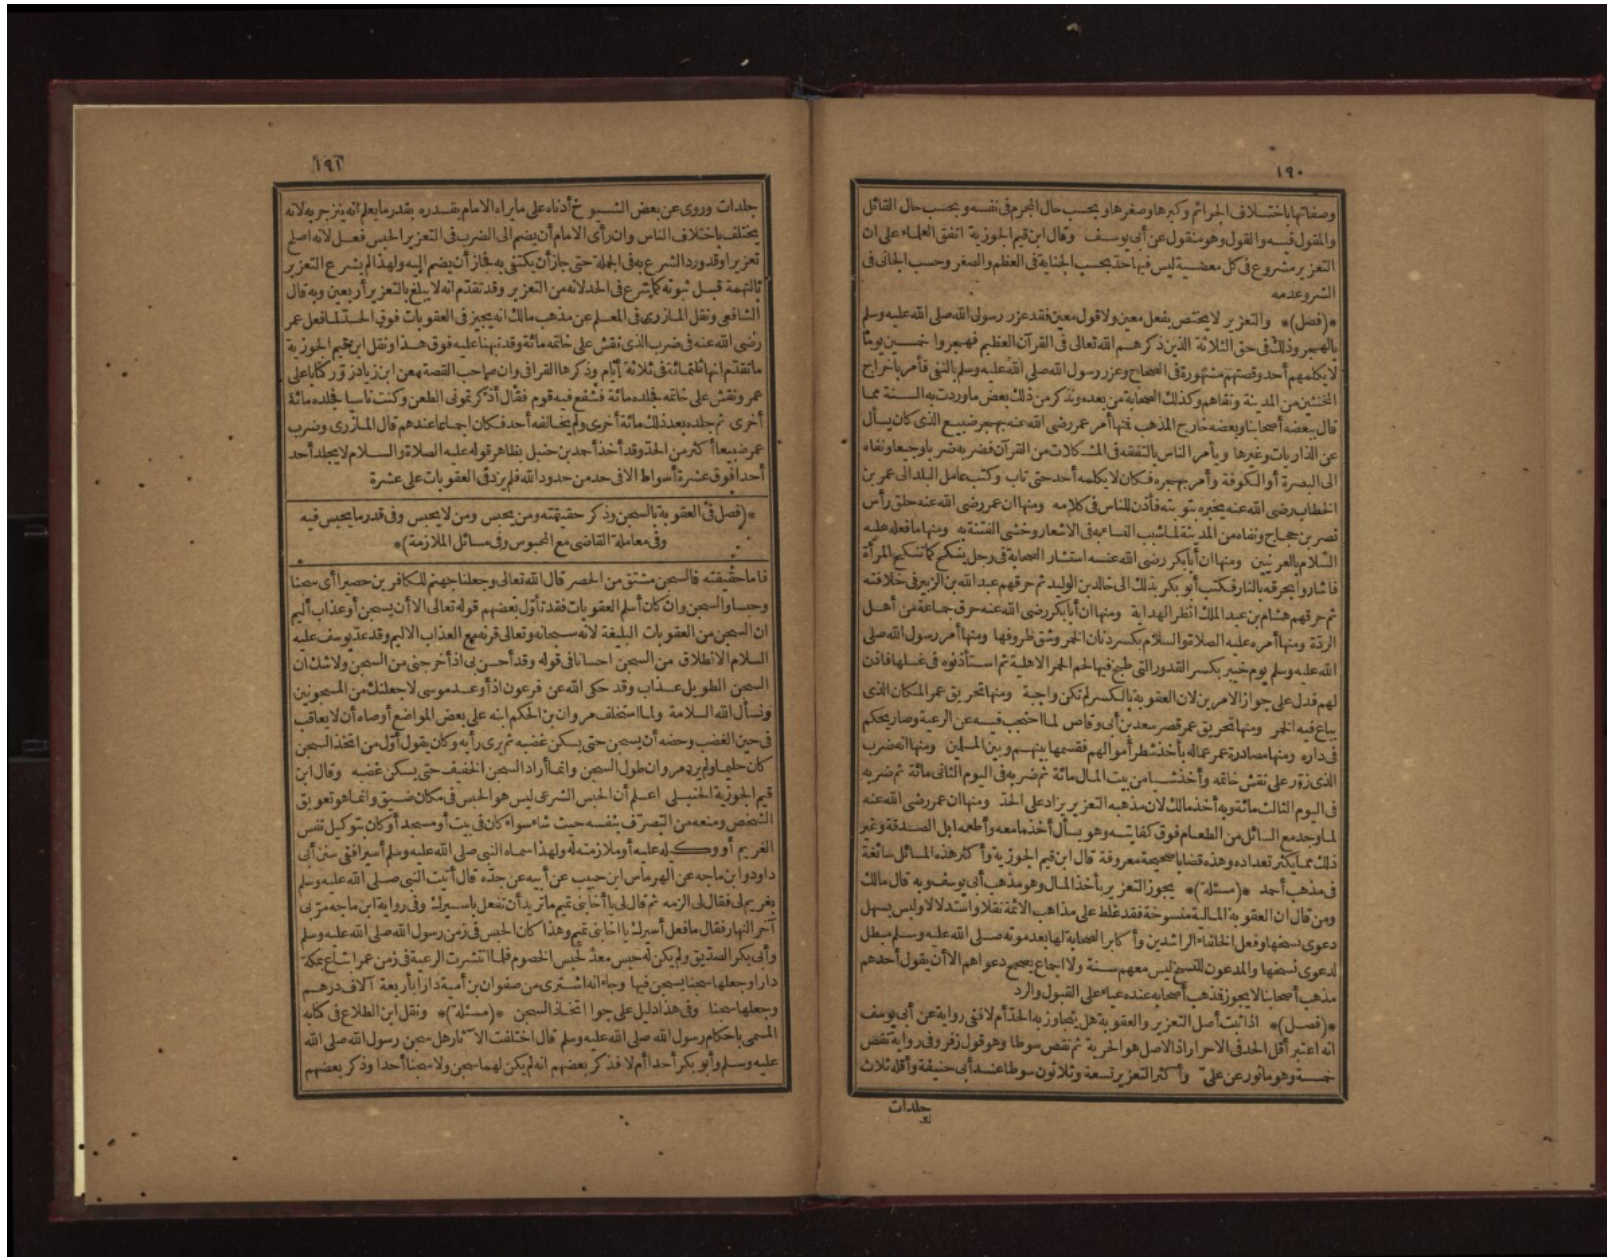 ١٩٠
وصفاتها باختلاف الجرائم وكبرها وصغرها وبحسب حال المجرم فى نفسه وبحسب حال القائل
والمقول فيه والقول وهو منقول عن أبى يوسف وقال ابن قيم الجوزية اتفق العلماء على ان
التعزير مشروع فى كل معصية ليس فيها حد بحسب الجناية فى العظم والصغر وحسب الجانى فى
الشر وعدمه
*(فصل)* والتعزير لا يختص بفعل معين ولا قول معين فقد عزر رسول الله صلى الله عليه وسلم
بالهجر وذلك فى حق الثلاثة الذين ذكرهم الله تعالى فى القرآن العظيم فهجروا خمسين يوما
لا يكلمهم أحد وقصتهم مشهورة فى الصحاح وعزر رسول الله صلى الله عليه وسلم بالنفى فأمر باخراج
المخنثين من المدينة ونفاهم وكذلك الصحابة من بعده ونذكر من ذلك بعض ما وردت به السنة مما
قال ببعضه أصحابنا وبعضه خارج المذهب فمنها أمر عمر رضى الله عنه بهجر ضبيع الذى كان يسأل
عن الذاريات وغيرها ويأمر الناس بالتفقه فى المشكلات من القرآن فضربه ضربا وجيعا ونفاه
الى البصرة أو الكوفة وأمر بهجره فكان لا يكلمه أحد حتى تاب وكتب عامل البلد الى عمر بن
الخطاب رضى الله عنه يخبره بتوبته فأذن للناس فى كلامه ومنها ان عمر رضى الله عنه حلق رأس
نصر بن حجاج ونفاه من المدينة لما شبب النساء به فى الاشعار وخشى الفتنة به ومنها ما فعله عليه
السلام بالعرنيين ومنها ان أبا بكر رضى الله عنه استشار الصحابة فى رجل ينكح كما تنكح المرأة
فأشاروا بحرقه بالنار فكتب أبو بكر بذلك الى خالد بن الوليد ثم حرقهم عبد الله بن الزبير فى خلافته
ثم حرقهم هشام بن عبد الملك انظر الهداية ومنها ان أبا بكر رضى الله عنه حرق جماعة من أهل
الردة ومنها أمره عليه الصلاة والسلام بكسر دنان الخمر وشق ظروفها ومنها أمر رسول الله صلى
الله عليه وسلم يوم خيبر بكسر القدور التى طبخ فيها لحم الحمر الاهلية ثم استأذنوه فى غسلها فاذن
لهم فدل على جواز الامرين لان العقوبة بالكسر لم تكن واجبة ومنها تحريق عمر المكان الذى
يباع فيه الخمر ومنها تحريق عمر قصر سعد بن أبى وقاص لما احتجب فيه عن الرعية وصار يحكم
فى داره ومنها مصادرة عمر عماله بأخذ شطر أموالهم فقسمها بينهم وبين المسلمين ومنها انه ضرب
الذى زور على نقش خاتمه وأخذ شيأ من بيت المال مائة ثم ضربه فى اليوم الثانى مائة ثم ضربه
فى اليوم الثالث مائة وبه أخذ مالك لان مذهبه التعزير يزاد على الحد ومنها ان عمر رضى الله عنه
لما وجد مع السائل من الطعام فوق كفايته وهو يسأل أخذ ما معه وأطعمه ابل الصدقة وغير
ذلك مما يكثر تعداده وهذه قضايا صحيحة معروفة قال ابن قيم الجوزية وأكثر هذه المسائل سائغة
فى مذهب أحمد *(مسئلة)* يجوز التعزير بأخذ المال وهو مذهب أبى يوسف وبه قال مالك
ومن قال ان العقوبة المالية منسوخة فقد غلط على مذاهب الائمة نقلا واستدلالا وليس بسهل
دعوى نسخها وفعل الخلفاء الراشدين وأكابر الصحابة لها بعد موته صلى الله عليه وسلم مبطل
لدعوى نسخها والمدعون للنسخ ليس معهم سنة ولا اجماع يصحح دعواهم الا أن يقول أحدهم
مذهب أصحابنا لا يجوز فذهب أصحابه عنده عيار على القبول والرد
*(فصل)* اذا ثبت أصل التعزير والعقوبة هل يتجاوز به الحد أم لا ففى رواية عن أبى يوسف
انه اعتبر أقل الحد فى الاحرار اذ الاصل هو الحرية ثم نقص سوطا وهو قول زفر وفى رواية نقص
خمسة وهو مأثور عن على وأكثر التعزير تسعة وثلاثون سوطا عند أبى حنيفة وأقله ثلاث
جلدات
١٩١
جلدات وروى عن بعض الشيوخ أدناه على ما يراه الامام يقدره بقدر ما يعلم انه ينزجر به لانه
يختلف باختلاف الناس وان رأى الامام أن يضم الى الضرب فى التعزير الحبس فعل لانه اصلح
تعزيرا وقد ورد الشرع به فى الجملة حتى جاز أن يكتفى به فجاز أن يضم اليه ولهذا لم يشرع التعزير
بالتهمة قبل ثبوته كما يشرع فى الحد لانه من التعزير وقد تقدم انه لا يبلغ بالتعزير أربعين وبه قال
الشافعى ونقل المازرى فى المعلم عن مذهب مالك انه يجيز فى العقوبات فوق الحد لما فعل عمر
رضى الله عنه فى ضرب الذى نقش على خاتمه مائة وقد نبهنا عليه فوق هذا ونقل ابن قيم الجوزية
ما تقدم انها ثلثمائة فى ثلاثة أيام وذكرها القرافى وان صاحب القصة معن ابن زياد زور كتابا على
عمر ونقش على خاتمه فجلده مائة فشفع فيه قوم فقال أذكرتمونى الطعن وكنت ناسيا فجلده مائة
أخرى ثم جلده بعد ذلك مائة أخرى ولم يخالفه أحد فكان اجماعا عندهم قال المازرى وضرب
عمر ضبيعا أكثر من الحد وقد أخذ أحمد بن حنبل بظاهر قوله عليه الصلاة والسلام لا يجلد أحد
أحدا فوق عشرة أسواط الا فى حد من حدود الله فلم يزد فى العقوبات على عشرة
*(فصل فى العقوبة بالسجن وذكر حقيقته ومن يحبس ومن لا يحبس وفى قدر ما يحبس فيه
وفى معاملة القاضى مع المحبوس وفى مسائل الملازمة)*
فاما حقيقته فالسجن مشتق من الحصر قال الله تعالى وجعلنا جهنم للكافرين حصيرا أى سجنا
وحبسا والسجن وان كان أسلم العقوبات فقد تأول بعضهم قوله تعالى الا أن يسجن أو عذاب أليم
ان السجن من العقوبات البليغة لانه سبحانه وتعالى قرنه مع العذاب الاليم وقد عد يوسف عليه
السلام الانطلاق من السجن احسانا فى قوله وقد أحسن بى اذ أخرجنى من السجن ولا شك ان
السجن الطويل عذاب وقد حكى الله عن فرعون اذ أوعد موسى لاجعلنك من المسجونين
ونسأل الله السلامة ولما استخلف مروان بن الحكم ابنه على بعض المواضع أوصاه أن لا يعاقب
فى حين الغضب وحضه أن يسجن حتى يسكن غضبه ثم يرى رأيه وكان يقول أول من اتخذ السجن
كان حليما ولم يرد مروان طول السجن وانما أراد السجن الخفيف حتى يسكن غضبه وقال ابن
قيم الجوزية الحنبلى اعلم أن الحبس الشرعى ليس هو الحبس فى مكان ضيق وانما هو تعويق
الشخص ومنعه من التصرف بنفسه حيث شاء سواء كان فى بيت أو مسجد أو كان بتوكيل نفس
الغريم أو وكيله عليه أو ملازمته له ولهذا سماه النبى صلى الله عليه وسلم أسيرا ففى سنن أبى
داود وابن ماجه عن الهرماس ابن حبيب عن أبيه عن جده قال أتيت النبى صلى الله عليه وسلم
بغريم لى فقال لى الزمه ثم قال لى يا أخا بنى تميم ما تريد أن تفعل باسيرك وفى رواية ابن ماجه مر بى
آخر النهار فقال ما فعل أسيرك يا أخا بنى تميم وهذا كان الحبس فى زمن رسول الله صلى الله عليه وسلم
وأبى بكر الصديق ولم يكن له حبس معد لحبس الخصوم فلما انتشرت الرعية فى زمن عمر ابتاع بمكة
دارا وجعلها سجنا يسجن فيها وجاء انه اشترى من صفوان بن أمية دارا بأربعة آلاف درهم
وجعلها سجنا وفى هذا دليل على جواز اتخاذ السجن *(مسئلة)* ونقل ابن الطلاع فى كتابه
المسمى باحكام رسول الله صلى الله عليه وسلم قال اختلفت الآثار هل سجن رسول الله صلى الله
عليه وسلم وأبو بكر أحدا أم لا فذكر بعضهم انه لم يكن لهما سجن ولا سجنا أحدا وذكر بعضهم